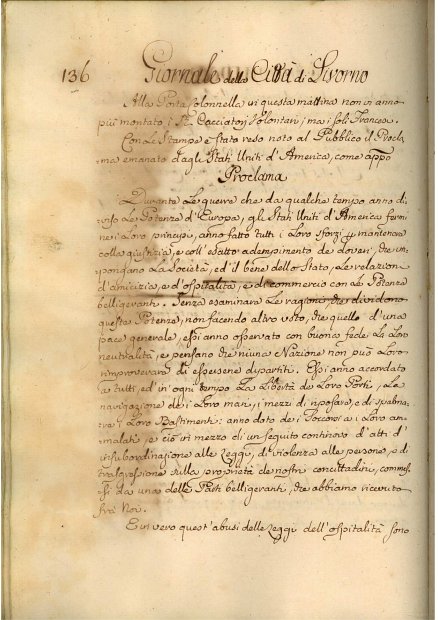 136 Giornale della Città di Livorno
Alla Porta Colonnella in questa mattina non in anno
più montato i SS. Cacciatori Volontari; ma i soli Francesi.
Con le Stampe è stato reso noto al Pubblico il Procla
ma emanato dagli Stati Uniti d'America, come appo
Proclama
Durante le guerre che da qualche tempo anno di
viso le Potenze d'Europa, gli Stati Uniti d'America fermi
nei loro principj, anno fatto tutti i loro sforzi per mantenere
colla giustizia, e coll'esatto adempimento de doveri, che im
pongano la Società, ed il bene dello Stato, le relazioni
d'amicizia, e d'ospitalità, e di commercio con le Potenze
belligeranti. Senza esaminare le ragioni, che dividono
queste Potenze, non facendo altro voto, che quello d'una
pace generale, essi anno osservato con buona fede la loro
neutralità, e pensano che niuna Nazione non può loro
rimproverare di essersene dipartiti. Essi anno accordato
a tutti, ed in ogni tempo la libertà de loro Porti, la
navigazione dei loro mari, i mezzi di riposare, e di spalma
re i loro Bastimenti: anno dato dei Soccorsi ai loro am
malati, e ciò in mezzo di un seguito continovo d'atti d'
insubordinazione alle leggi, di violenza alle persone, e di
trasgressione sulla proprietà de nostri concittadini, commes
si da una delle Parti belligeranti, che abbiamo ricevuto
fra Noi.
E in vero quest'abusi delle leggi dell'ospitalità sono